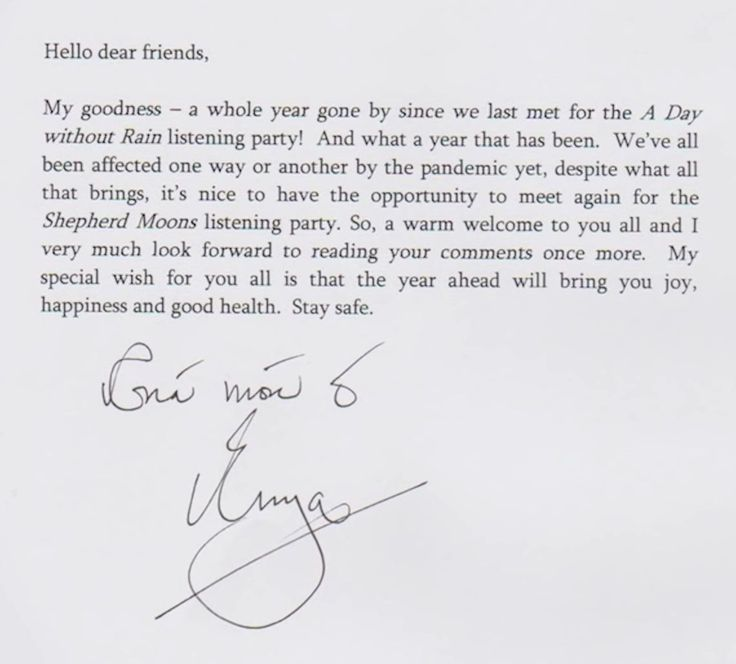 Hello dear friends,
My goodness – a whole year gone by since we last met for the A Day
without Rain listening party! And what a year that has been. We've all
been affected one way or another by the pandemic yet, despite what all
that brings, it's nice to have the opportunity to meet again for the
Shepherd Moons listening party. So, a warm welcome to you all and I
very much look forward to reading your comments once more. My
special wish for you all is that the year ahead will bring you joy,
happiness and good health. Stay safe.
Grá mór ó
Enya